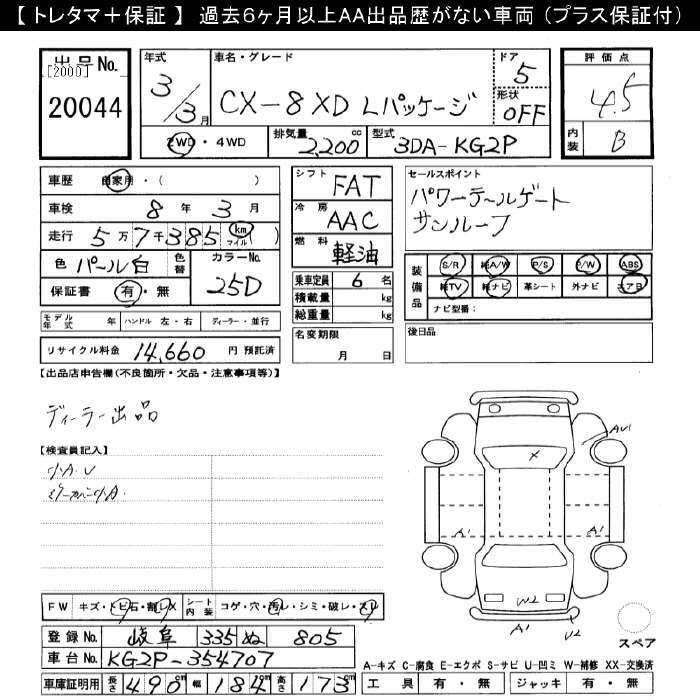 【トレタマ＋保証】 過去6ヶ月以上AA出品歴がない車両（プラス保証付）
出品No. [2000] 20044
年式 3/3月
車名・グレード CX-8 XD Lパッケージ
ドア 5 形状 OFF
2WD・4WD 排気量 2,200cc 型式 3DA-KG2P
評価点 4.5
内装 B
車歴 自家用・（ ）
車検 8年 3月
走行 5万7千385 km マイル（ ）
色 パール白 色替 カラーNo. 25D
保証書 有・無
シフト FAT
冷房 AAC
燃料 軽油
乗車定員 6名
積載量 kg
総重量 kg
セールスポイント
パワーテールゲート
サンルーフ
装備品 S/R 純A/W P/S P/W ABS
純TV 純ナビ 革シート 外ナビ エアB
ナビ型番：
モデル年式 年 ハンドル 左・右 ディーラー・並行
名変期限 月 日
後日品
リサイクル料金 14,660 円 預託済
【出品店申告欄(不良箇所・欠品・注意事項等)】
ディーラー出品
【検査員記入】
小A.U
ミラーカバー小A.
AU1
X
A1 A1
W2
A1 U2
スペア
FW キズ・トビ石・割レX シート内装 コゲ・穴・汚レ・シミ・破レ・スレ
登録No. 岐阜 335 ぬ 805
車台No. KG2P-354707
車庫証明用 長さ 490cm 幅 184cm 高さ 173cm
A-キズ C-腐食 E-エクボ S-サビ U-凹ミ W-補修 XX-交換済
工具 有・無 ジャッキ 有・無